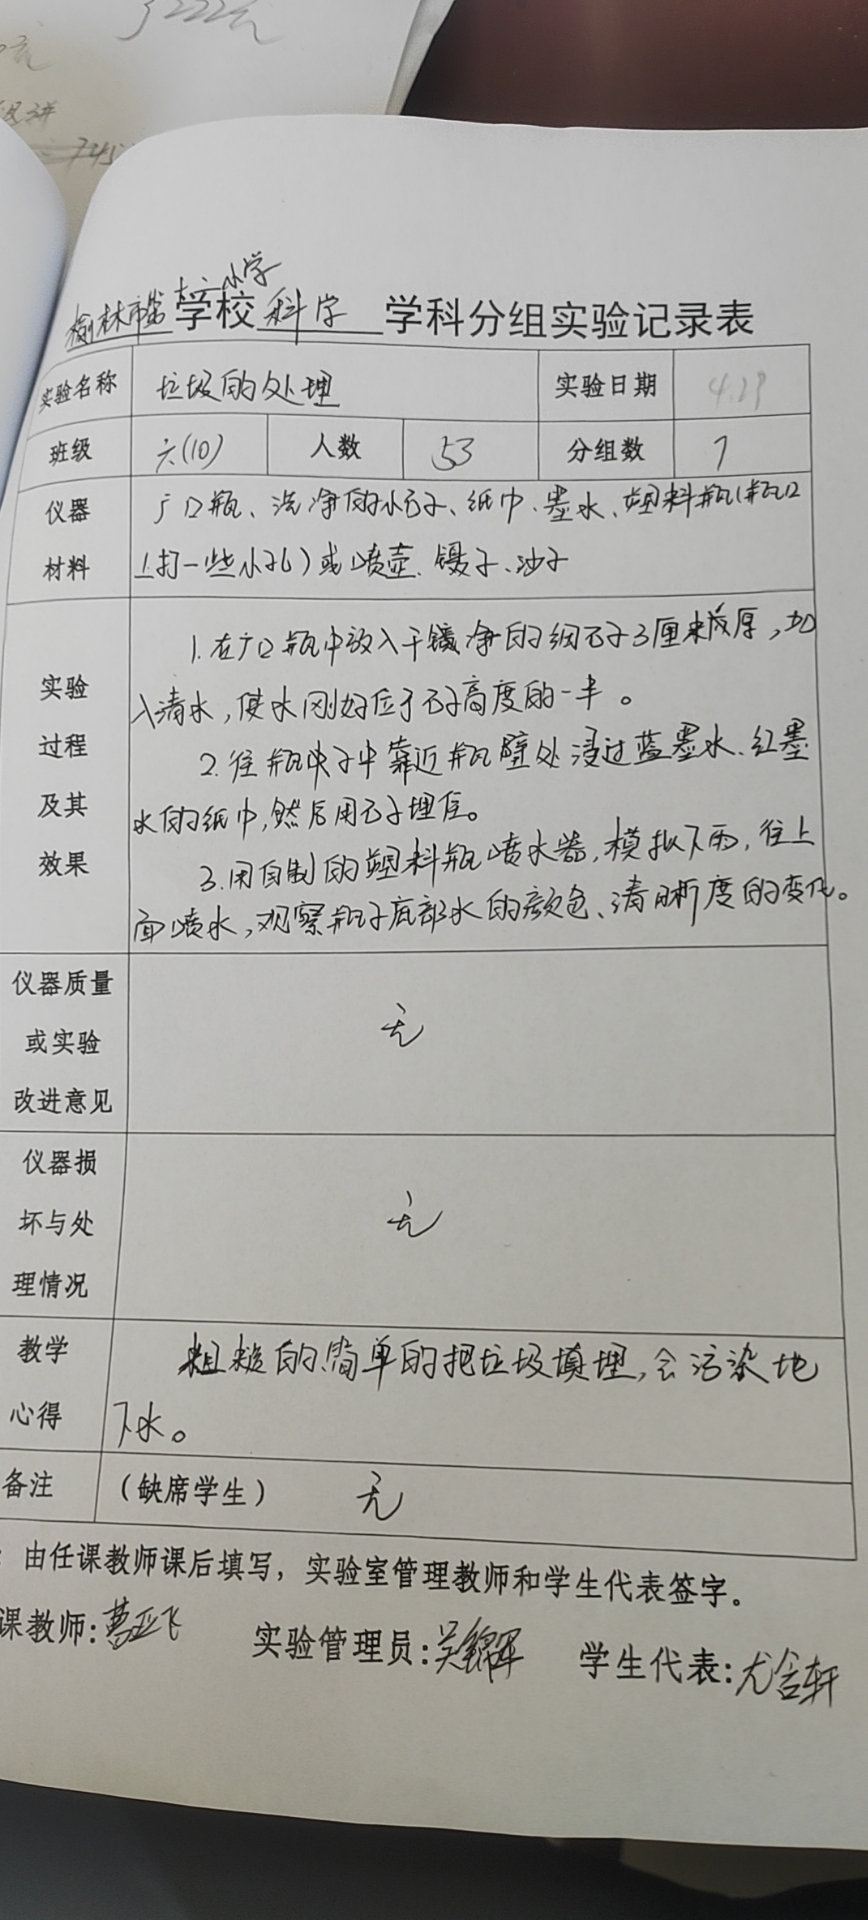 榆林市第十二小学
学校 科学 学科分组实验记录表
实验名称 垃圾的处理 实验日期 4.29
班级 六(10) 人数 53 分组数 7
仪器 广口瓶、洗净的小石子、纸巾、墨水、塑料瓶(瓶口
材料 上打一些小孔)或喷壶、镊子、沙子
实验
过程
及其
效果
1.在广口瓶中放入干净的细石子3厘米厚,加
入清水,使水刚好位于石子高度的一半。
2.往瓶子中靠近瓶壁处浸过蓝墨水、红墨
水的纸巾,然后用石子埋住。
3.用自制的塑料瓶喷水器,模拟下雨,往上
面喷水,观察瓶子底部水的颜色、清晰度的变化。
仪器质量
或实验
改进意见
无
仪器损
坏与处
理情况
无
教学 粗糙的简单的把垃圾填埋,会污染地
心得 下水。
备注 (缺席学生) 无
:由任课教师课后填写,实验室管理教师和学生代表签字。
课教师:曹亚飞 实验管理员:吴锦军 学生代表:尤含轩